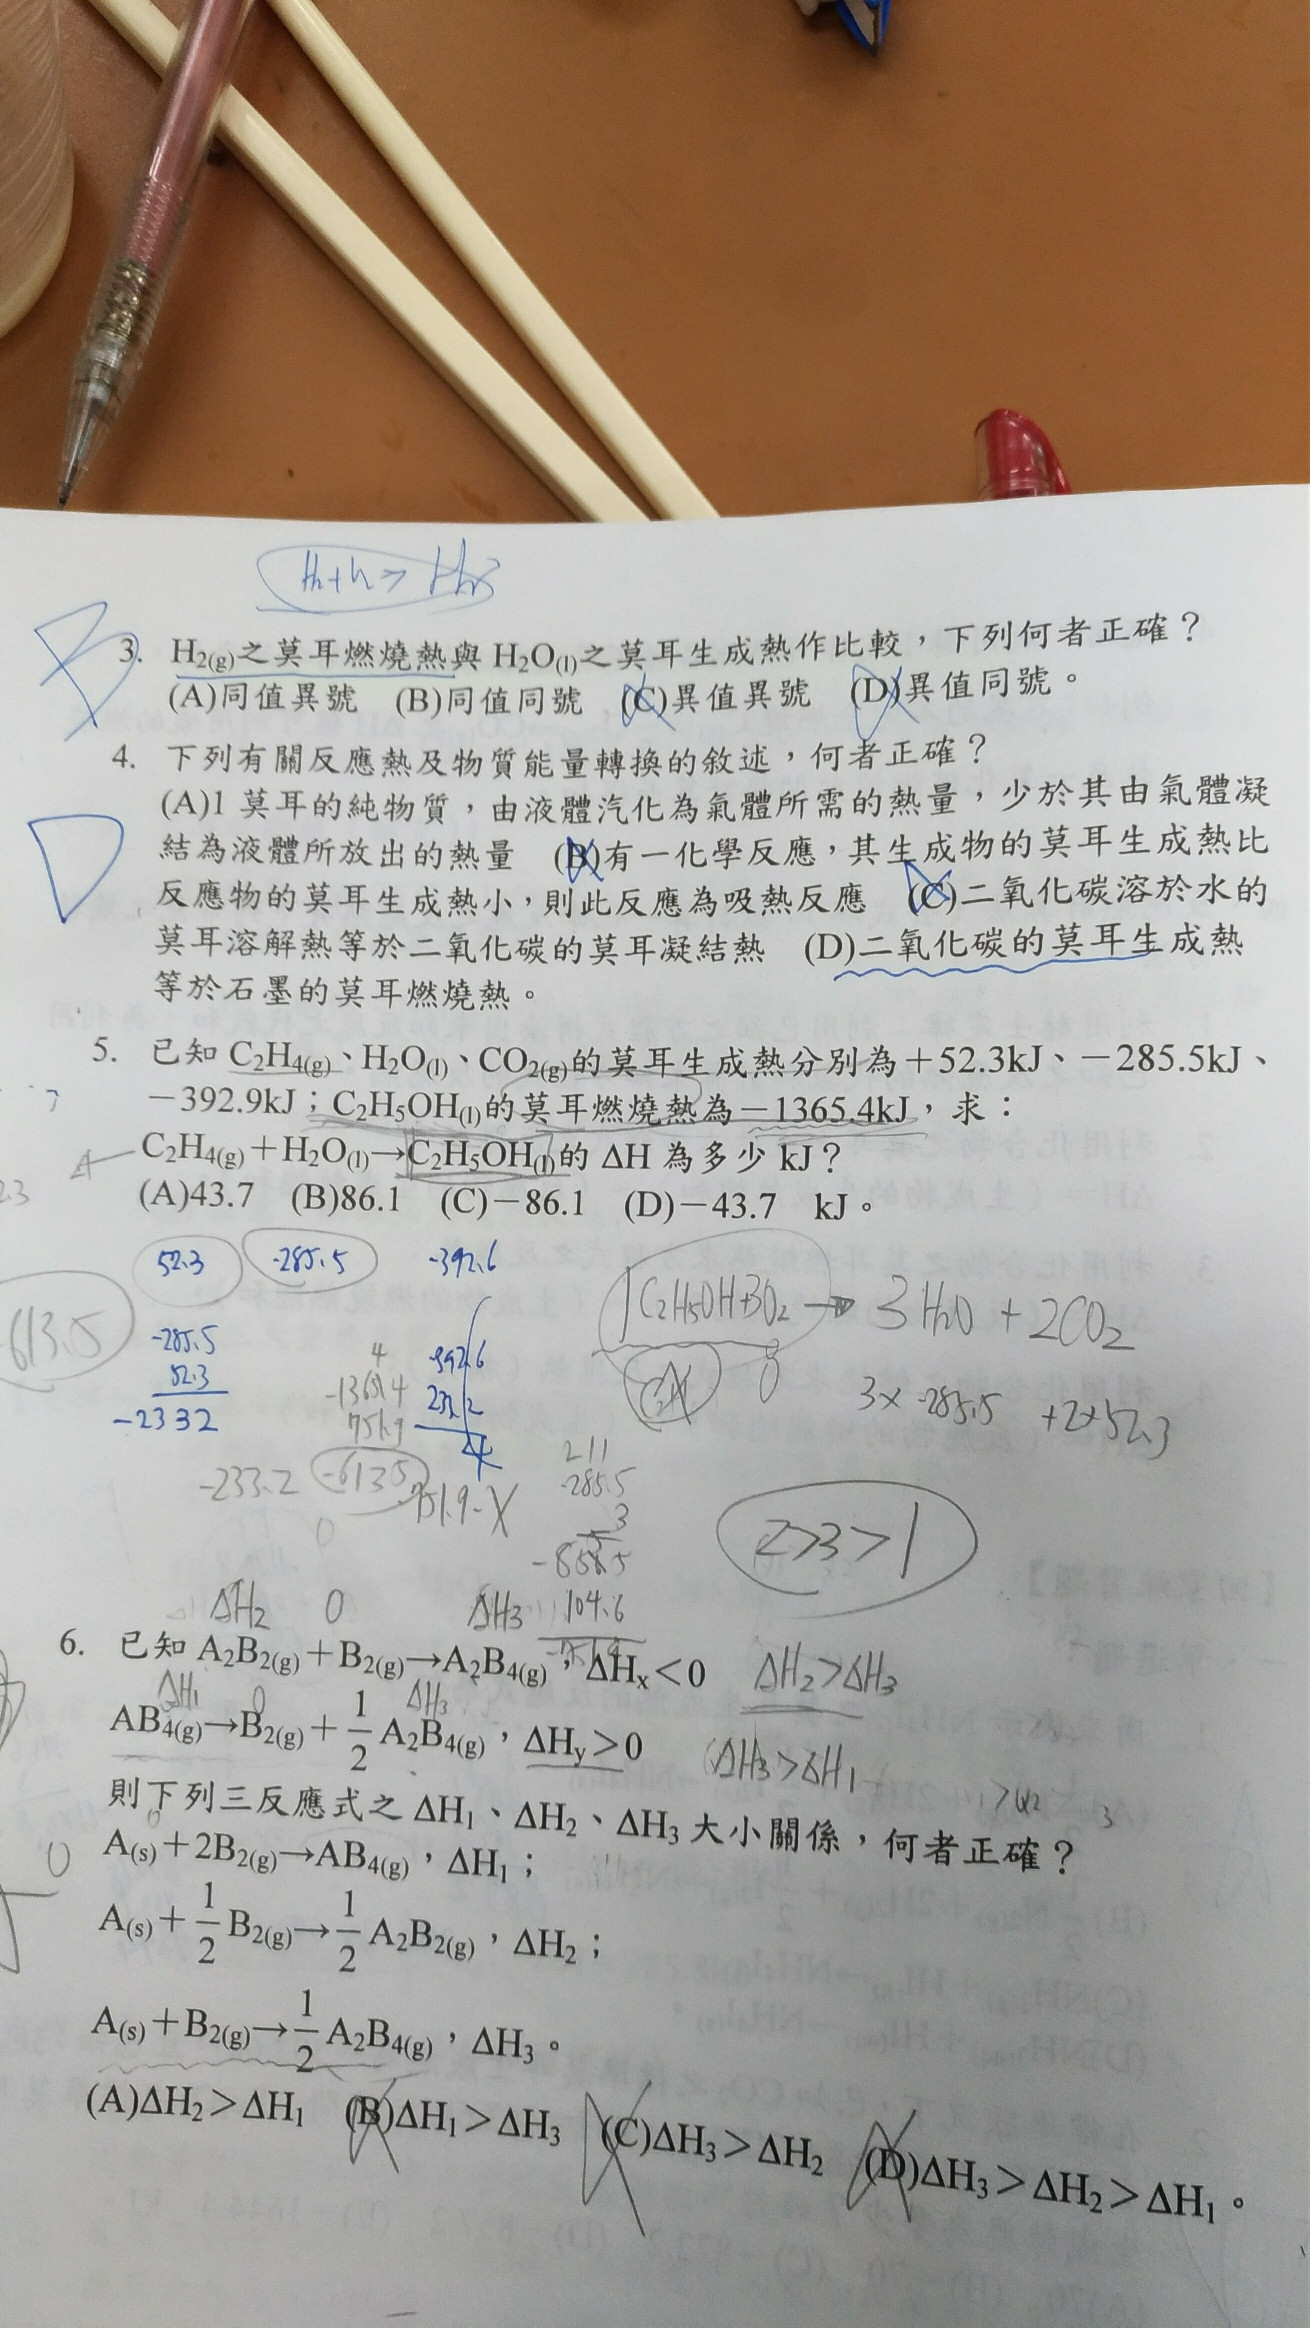 3. H₂(g)之莫耳燃燒熱與 H₂O(l)之莫耳生成熱作比較，下列何者正確？
(A)同值異號 (B)同值同號 (C)異值異號 (D)異值同號。
4. 下列有關反應熱及物質能量轉換的敘述，何者正確？
(A)1 莫耳的純物質，由液體汽化為氣體所需的熱量，少於其由氣體凝
結為液體所放出的熱量 (B)有一化學反應，其生成物的莫耳生成熱比
反應物的莫耳生成熱小，則此反應為吸熱反應 (C)二氧化碳溶於水的
莫耳溶解熱等於二氧化碳的莫耳凝結熱 (D)二氧化碳的莫耳生成熱
等於石墨的莫耳燃燒熱。
5. 已知 C₂H₄(g)、H₂O(l)、CO₂(g)的莫耳生成熱分別為＋52.3kJ、－285.5kJ、
－392.9kJ；C₂H₅OH(l)的莫耳燃燒熱為－1365.4kJ，求：
C₂H₄(g)＋H₂O(l)→C₂H₅OH(l)的 ΔH 為多少 kJ？
(A)43.7 (B)86.1 (C)－86.1 (D)－43.7 kJ。
52.3 -285.5 -392.6
1C₂H₅OH+3O₂ → 3H₂O + 2CO₂
613.5
-285.5
52.3
-2332
3× -285.5 +2×52.3
-233.2 -613.5 751.9-X
211
-285.5
3
2>3>1
104.6
ΔH₂ 0 ΔH₃
6. 已知 A₂B₂(g)＋B₂(g)→A₂B₄(g)，ΔHₓ＜0 ΔH₂>ΔH₃
ΔH₁ 0 ΔH₃
AB₄(g)→B₂(g)＋1/2 A₂B₄(g)，ΔHy＞0 ΔH₃>ΔH₁
則下列三反應式之 ΔH₁、ΔH₂、ΔH₃ 大小關係，何者正確？
A(s)＋2B₂(g)→AB₄(g)，ΔH₁；
A(s)＋1/2 B₂(g)→1/2 A₂B₂(g)，ΔH₂；
A(s)＋B₂(g)→1/2 A₂B₄(g)，ΔH₃。
(A)ΔH₂＞ΔH₁ (B)ΔH₁＞ΔH₃ (C)ΔH₃＞ΔH₂ (D)ΔH₃＞ΔH₂＞ΔH₁。